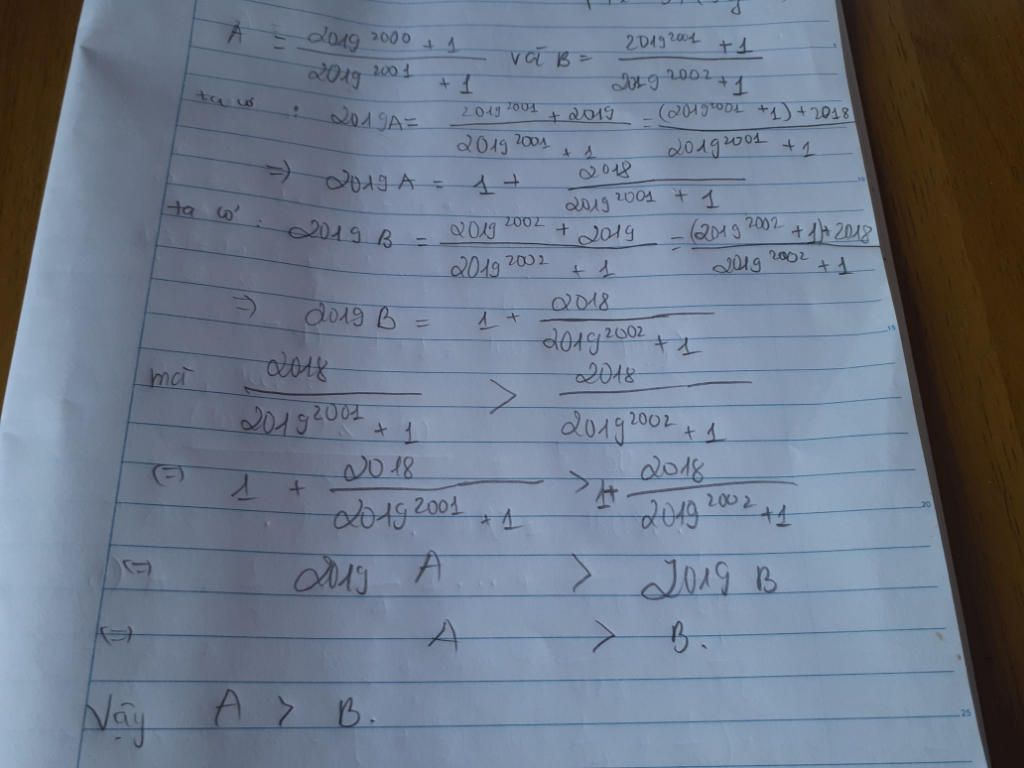 A = (2019^2000 + 1)/(2019^2001 + 1) và B = (2019^2001 + 1)/(2019^2002 + 1)
ta có : 2019A = (2019^2001 + 2019)/(2019^2001 + 1) = ((2019^2001 + 1) + 2018)/(2019^2001 + 1)
=> 2019 A = 1 + 2018/(2019^2001 + 1)
ta có : 2019 B = (2019^2002 + 2019)/(2019^2002 + 1) = ((2019^2002 + 1) + 2018)/(2019^2002 + 1)
=> 2019 B = 1 + 2018/(2019^2002 + 1)
mà 2018/(2019^2001 + 1) > 2018/(2019^2002 + 1)
(=) 1 + 2018/(2019^2001 + 1) > 1 + 2018/(2019^2002 + 1)
(=) 2019 A > 2019 B
(=) A > B.
Vậy A > B.